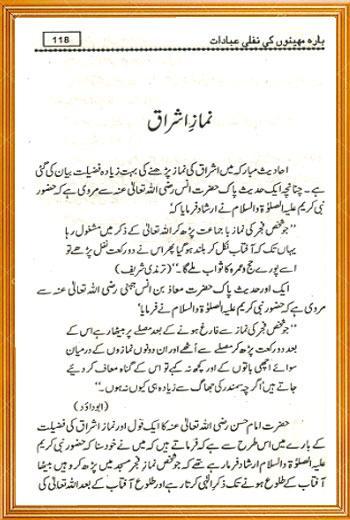 بارہ مہینوں کی نفلی عبادات
118
نمازِ اشراق
احادیث مبارکہ میں اشراق کی نماز پڑھنے کی بہت زیادہ فضیلت بیان کی گئی
ہے۔ چنانچہ ایک حدیث پاک حضرت انس رضی اللہ تعالیٰ عنہ سے مروی ہے کہ حضور
نبی کریم علیہ الصلوٰۃ والسلام نے ارشاد فرمایا کہ
’’جو شخص فجر کی نماز با جماعت پڑھ کر اللہ تعالیٰ کے ذکر میں مشغول رہا
یہاں تک کہ آفتاب نکل کر بلند ہو گیا پھر اس نے دو رکعت نفل پڑھے تو
اسے پورے حج و عمرہ کا ثواب ملے گا۔‘‘ (ترمذی شریف)
ایک اور حدیث پاک حضرت معاذ بن انس جہنی رضی اللہ تعالیٰ عنہ سے
مروی ہے کہ حضور نبی کریم علیہ الصلوٰۃ والسلام نے فرمایا
’’جو شخص فجر کی نماز سے فارغ ہونے کے بعد مصلے پر بیٹھا رہے اس کے
بعد دو رکعت پڑھ کر مصلے سے اٹھے اور ان دونوں نمازوں کے درمیان
سوائے اچھی باتوں کے اور کچھ نہ کہے تو اس کے گناہ معاف کر دیئے
جاتے ہیں اگرچہ سمندر کی جھاگ سے زیادہ ہی کیوں نہ ہوں۔‘‘
(ابوداؤد)
حضرت امام حسن رضی اللہ تعالیٰ عنہ کا ایک قول اور نماز اشراق کی فضیلت
کے بارے میں اس طرح سے ہے کہ فرماتے ہیں کہ میں نے خود سنا کہ حضور نبی کریم
علیہ الصلوٰۃ والسلام ارشاد فرما رہے تھے کہ جو شخص نماز فجر مسجد میں پڑھ کر وہیں بیٹھا
آفتاب کے طلوع ہونے تک ذکر الٰہی کرتا رہے اور طلوع آفتاب کے بعد اللہ تعالیٰ کی